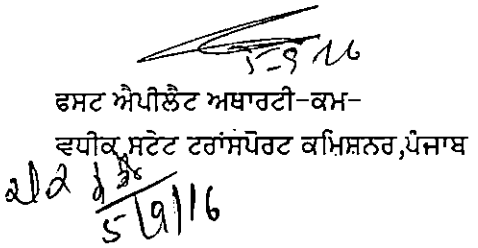 5-9-16
ਫਸਟ ਐਪੀਲੈਟ ਅਥਾਰਟੀ-ਕਮ-
ਵਧੀਕ ਸਟੇਟ ਟਰਾਂਸਪੋਰਟ ਕਮਿਸ਼ਨਰ,ਪੰਜਾਬ
5/9/16